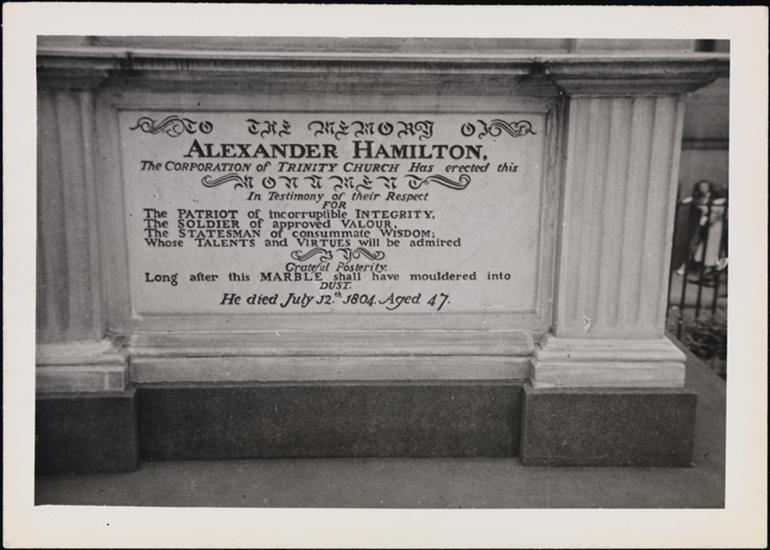 TO THE MEMORY OF
ALEXANDER HAMILTON,
The CORPORATION of TRINITY CHURCH Has erected this
MONUMENT
In Testimony of their Respect
FOR
The PATRIOT of incorruptible INTEGRITY,
The SOLDIER of approved VALOUR,
The STATESMAN of consummate WISDOM;
Whose TALENTS and VIRTUES will be admired
BY
Grateful Posterity.
Long after this MARBLE shall have mouldered into
DUST.
He died July 12.th 1804. Aged 47.